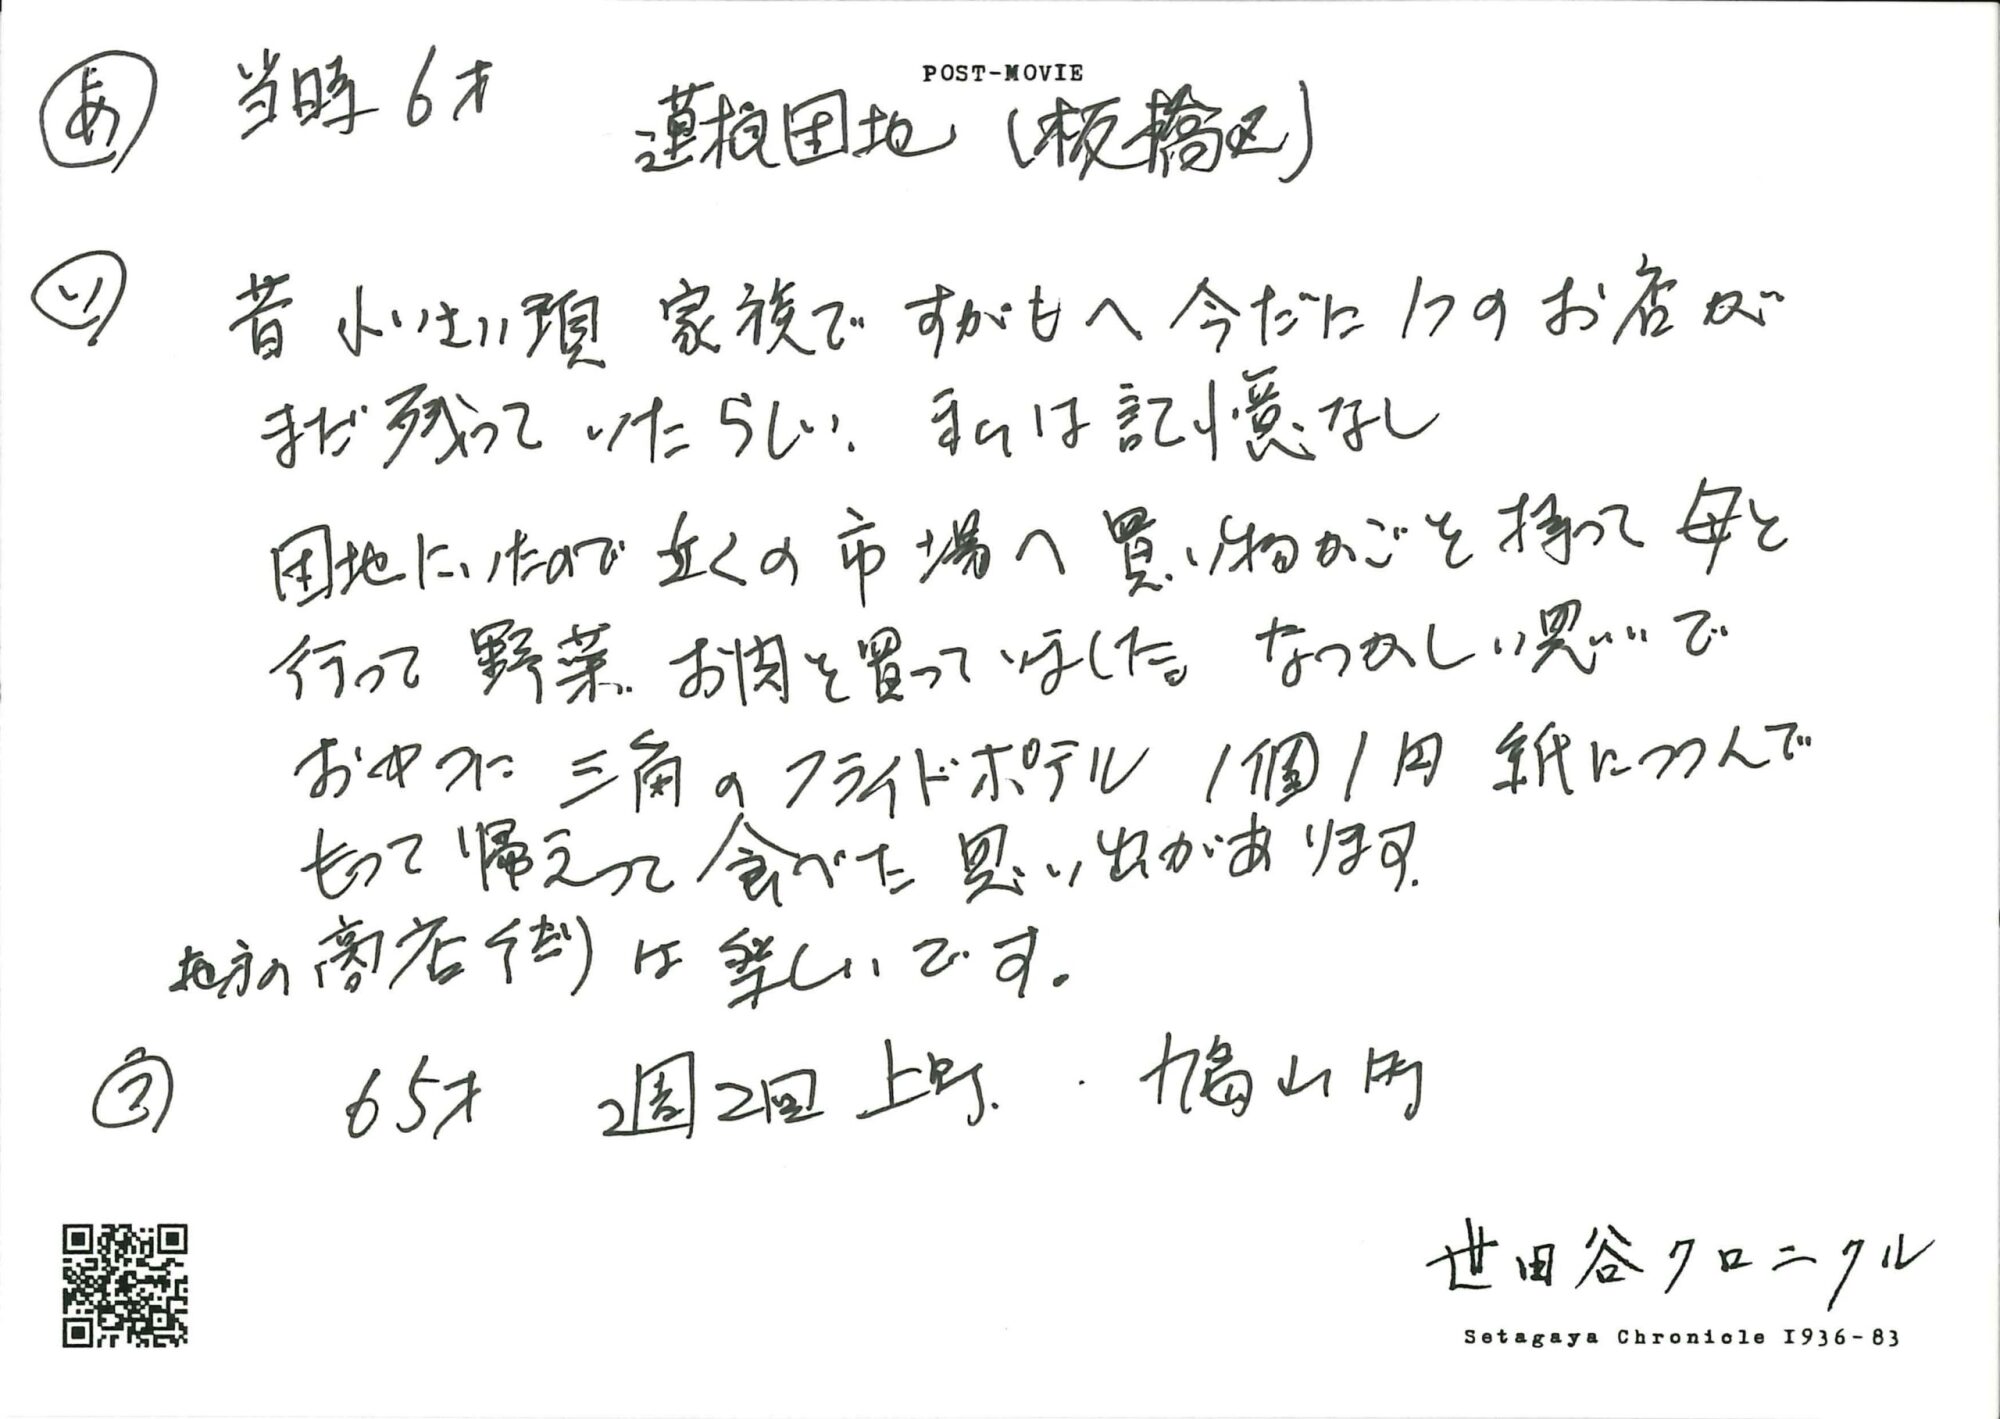 POST-MOVIE
あ 当時 6才 蓮根団地 (板橋区)
い 昔 小いさい頃 家族で すがもへ 今だに 1つの お店が
まだ 残って いた らしい、 私は 記憶なし
団地にいたので 近くの 市場へ 買い物かごを 持って 母と
行って 野菜、お肉を買っていました。 なつかしい思いで
おやつに 三角の フライドポテル 1個1円 紙につつんで
もって 帰えって 食べた 思い出があります。
地方の 商店(街)は 楽しいです。
う 65才 2週2回 上町. ・ 鳩山町
世田谷クロニクル
Setagaya Chronicle 1936-83